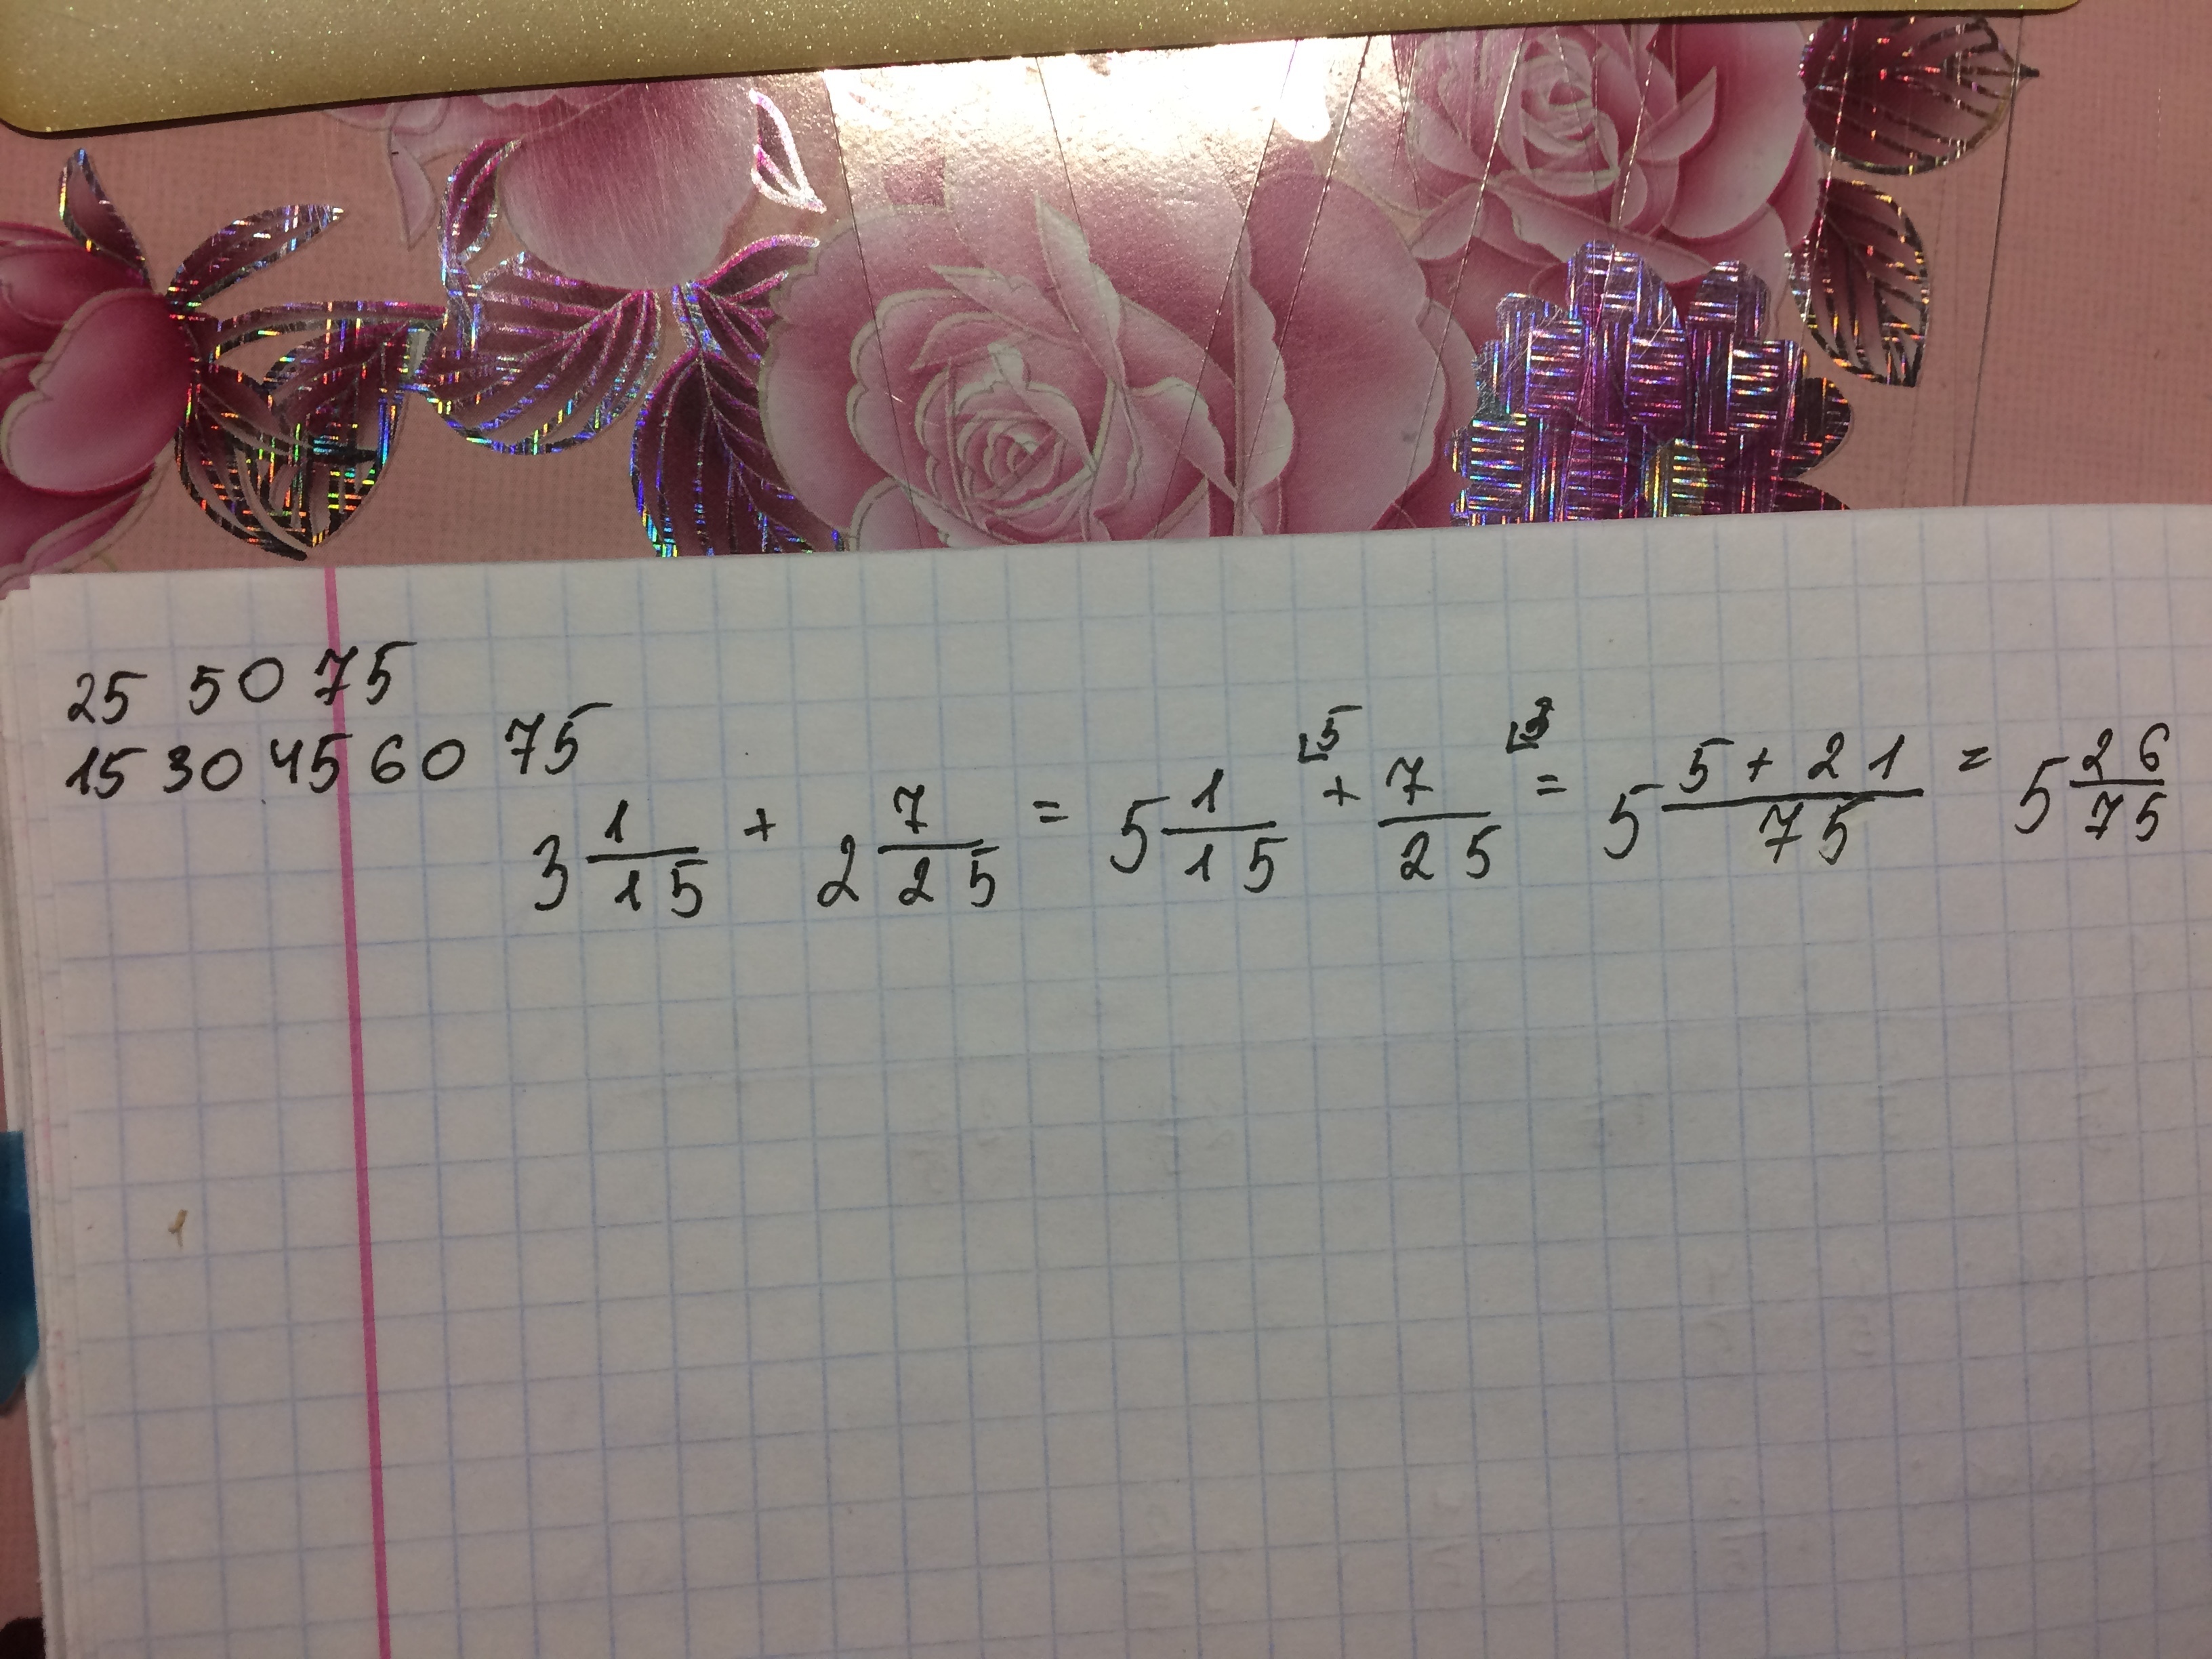 25 50 75
15 30 45 60 75
3 1/15 + 2 7/25 = 5 1/15 ⌞5 + 7/25 ⌞3 = 5 5+21/75 = 5 26/75